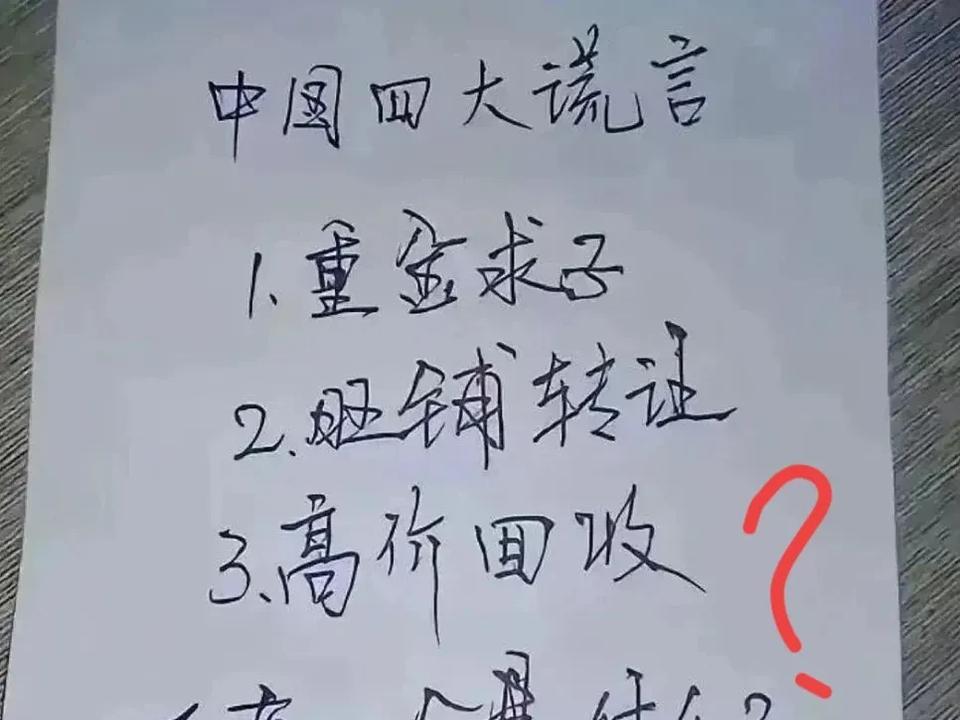 中国四大谎言
1.重金求子
2.旺铺转让
3.高价回收
个是什么?
?